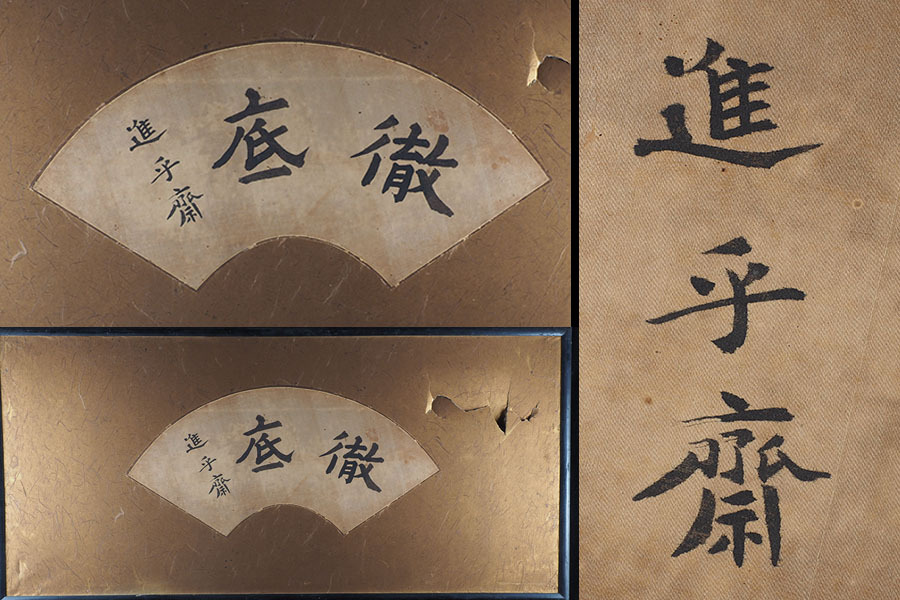 徹底
進乎齋
徹底
進乎齋
進乎齋